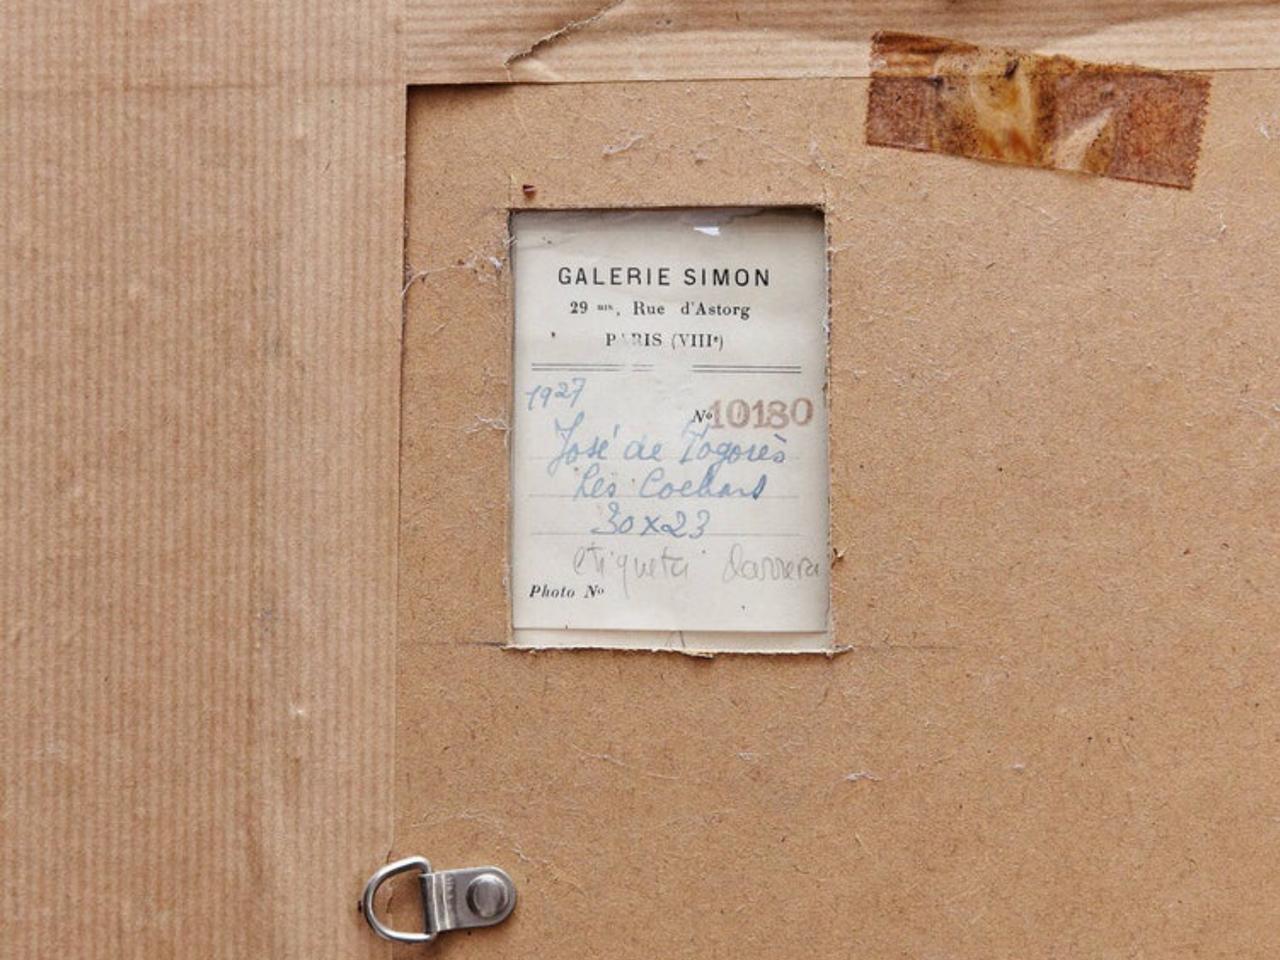 GALERIE SIMON
29 BIS, Rue d'Astorg
PARIS (VIIIe)
1927
No 10180
José de Togorès
Les Cochons
30x23
etiqueta darrera
Photo No